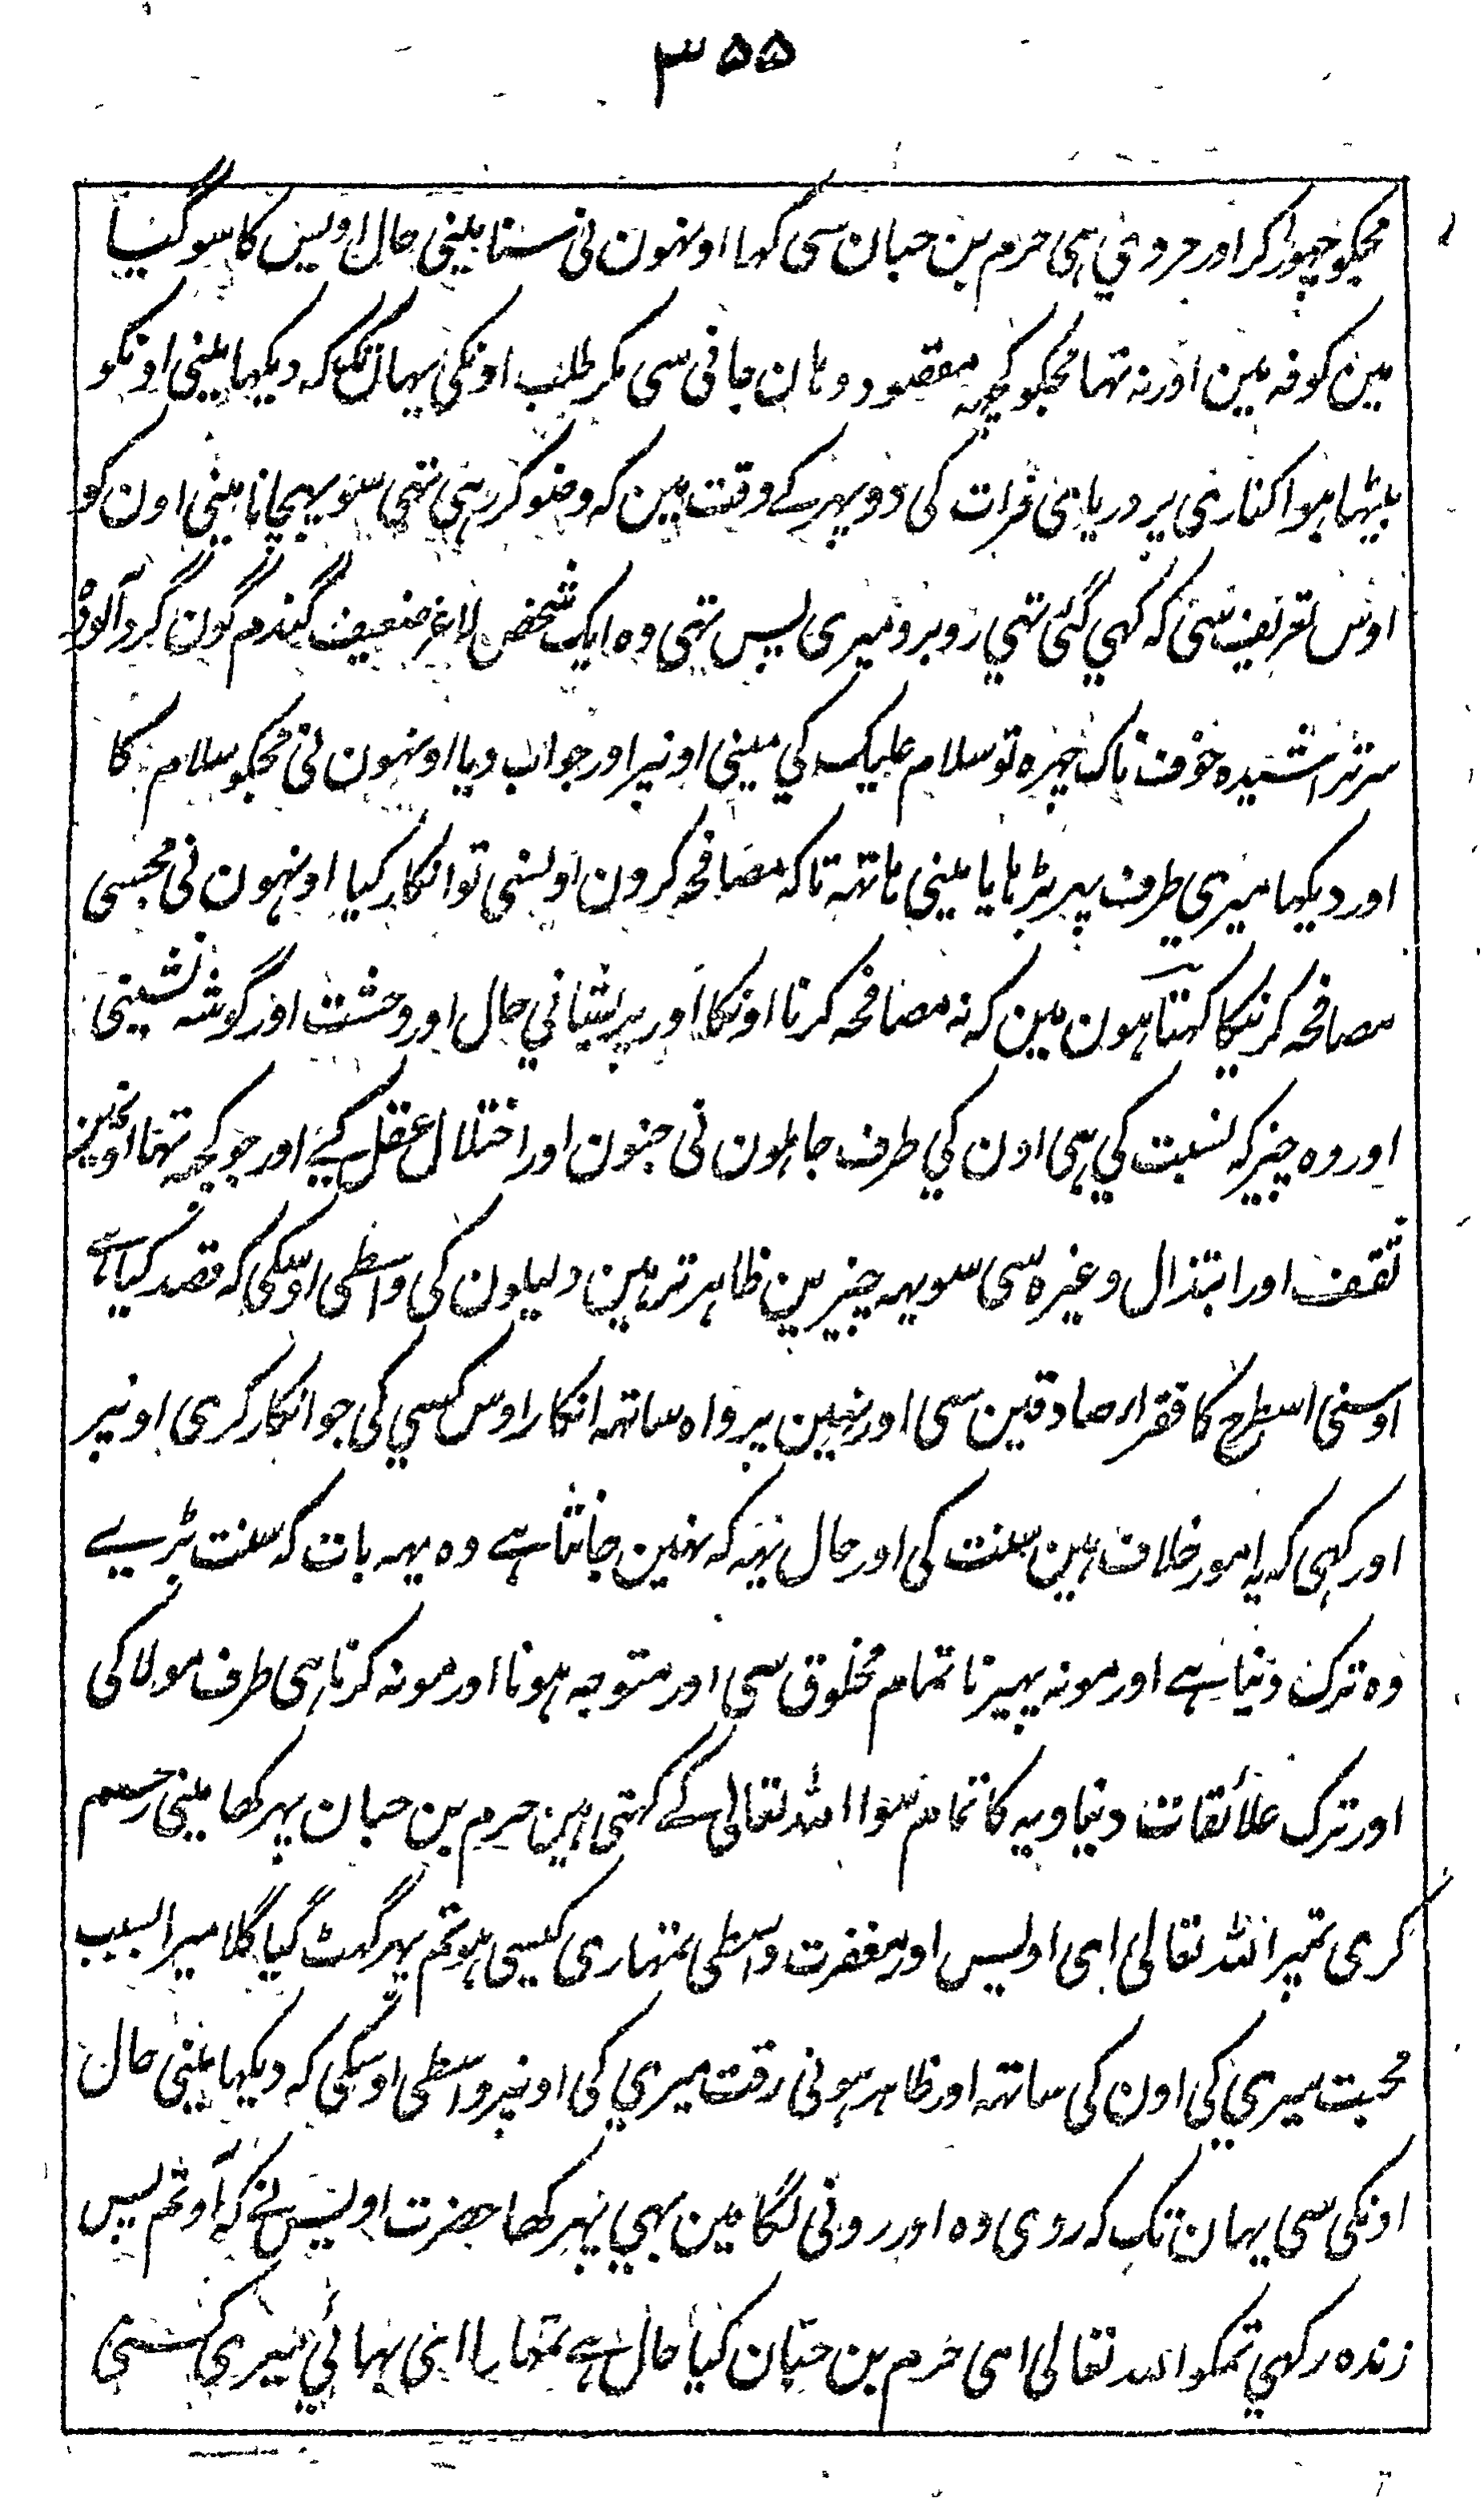 ۳۵۵
مجکو چہوڑ کر اور مروی ہی حرم بن حبان سی کہا اونہون نی سنا مینی حال اویس کا سو گیا
مین کوفہ مین اور نہ تہا مجکو کچہ مقصود وہان جانی سی مگر طلب اونکی یہان تک کہ دیکہا مینی اونکو
بیٹہا ہوا کناری پر دریای فرات کی دوپہر کے وقت مین کہ وضو کر رہی تہی سو پہچانا مینی اون کو
اوس تعریف سی کہ کہی گئی تہی روبرو میری پس تہی وہ ایک شخص لاغر ضعیف گندم گون گرد آلودہ
سر تراشیدہ خوفناک چہرہ تو سلام علیک کی مینی اونپر اور جواب دیا اونہون نی مجکو سلام کا
اور دیکہا میری طرف پہر بڑہایا مینی ہاتہہ تاکہ مصافحہ کرون اونسی تو انکار کیا اونہون نی مجہسی
مصافحہ کرنیکا کہتا ہون مین کہ نہ مصافحہ کرنا اونکا اور پریشانی حال اور وحشت اور گوشہ نشینی
اور وہ چیز کہ نسبت کی ہی اون کی طرف جاہلون نی جنون اور اختلال عقل کے اور جو کچہ تہا اونمین
تقف اور ابتذال وغیرہ سی سو یہہ چیزین ظاہر تر ہین دلیلون کی واسطی اوسکی کہ قصد کیا ہے
اوسنی اسطرح کا فقراء صادقین سی اور نہین پرواہ ساتہہ انکار اوس کسی کی جو انکار کری اونپر
اور کہی کہ یہ امور خلاف ہین سنت کی اور حال یہہ کہ نہین جانتا ہے وہ یہہ بات کہ سنت بڑی
وہ ترک دنیا ہے اور مونہ پہیرنا تمام مخلوق سی اور متوجہ ہونا اور مونہ کرنا ہی طرف مولا کی
اور ترک علائقات دنیاویہ کا تمام سوا اللہ تعالی کے کہتی ہین حرم بن حبان پہر کہا مینی رحم
کری تمپر اللہ تعالی ای اویس اور مغفرت واسطی تمہاری کیسی ہو تم پہر گہٹ گیا گلا میرا بسبب
محبت میری کی اون کی ساتہہ اور ظاہر ہونی رقت میری کی اونپر واسطی اوسکی کہ دیکہا مینی حال
اونکی سی یہان تک کہ روی وہ اور رونی لگا مین بہی پہر کہا حضرت اویس نے کہ آو تم پس
زندہ رکہی تمکو اللہ تعالی ای حرم بن حبان کیا حال ہے تمہارا ای بہائی میری کسنی